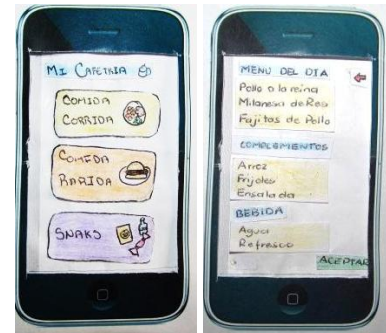 MI CAFETRIA
COMIDA
CORRIDA
COMIDA
RAPIDA
SNAKS
MENU DEL DIA
Pollo a la reina
Milanesa de Res
Fajitas de Pollo
COMPLEMENTOS
Arroz
Frijoles
Ensalada
BEBIDA
Agua
Refresco
ACEPTAR